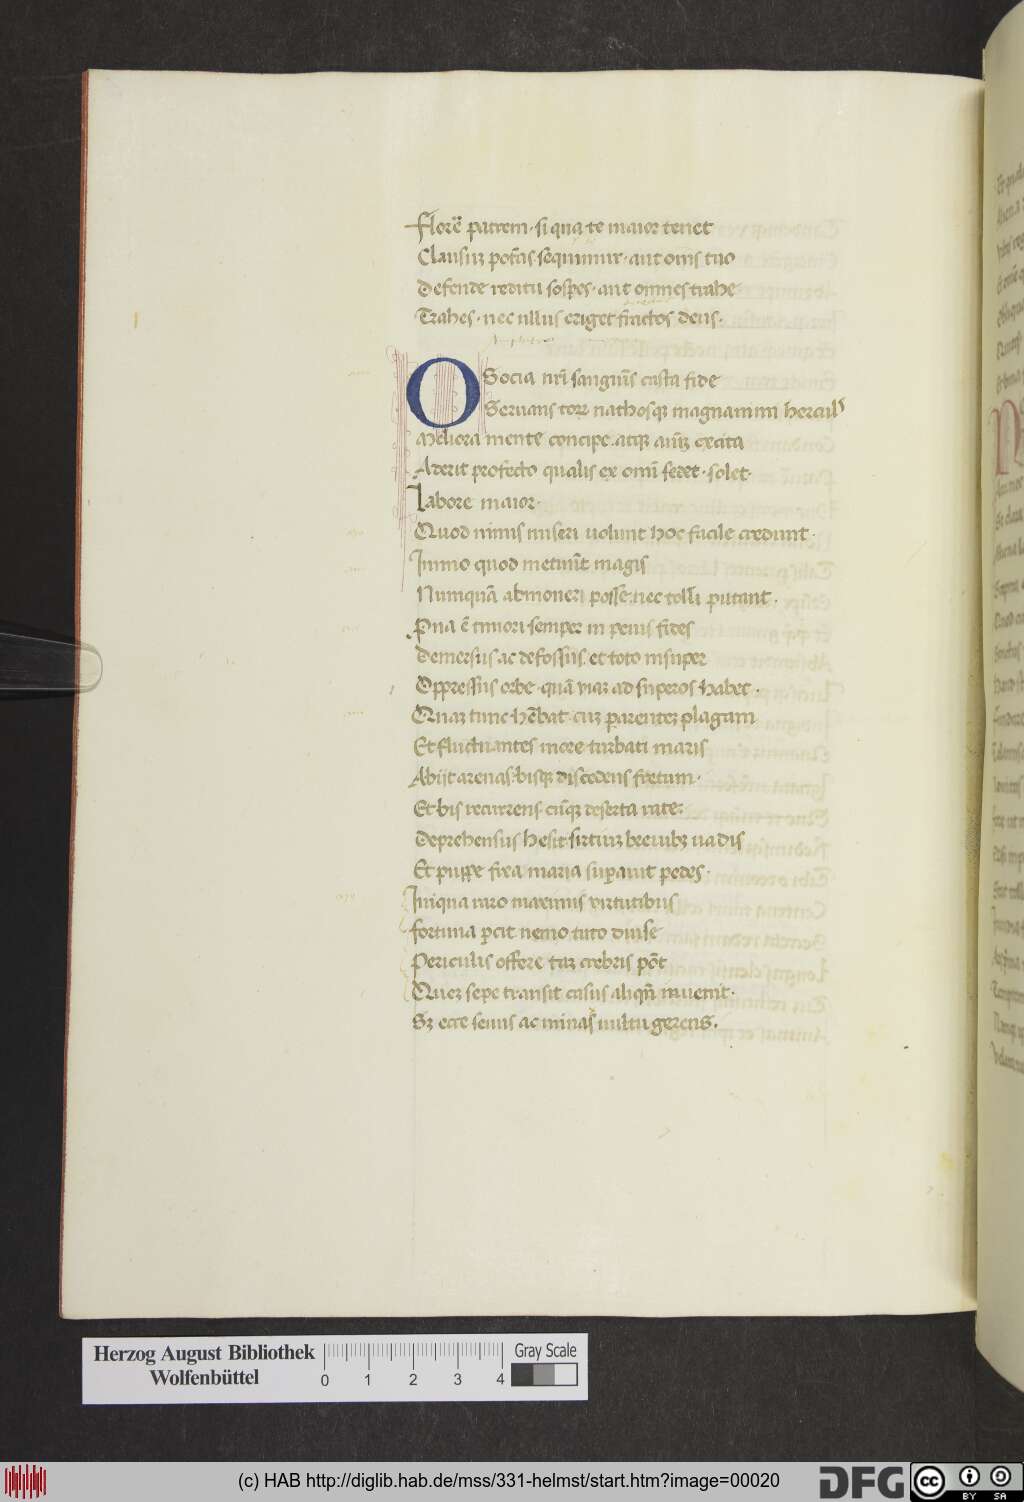 florē patrem · si qua te maior tenet
Clausuꝫ potās · sequimur · aut oīns tuo
Defende reditu sospes · aut omnes trahe
Trahes · nec ullus eriget fractos deus ·
O Socia nrī sanguīs casta fide
Seruans torꝝ nathosqꝫ magnanimi hercul
Meliora mente concipe · atqꝫ aīūꝫ excita
Aderit profecto qualis ex omī sedet · solet ·
Labore maior ·
Quod nimis miseri uolunt hoc facile credunt ·
Immo quod metuūt magis
Numquā abmoneri posse · nec tolli putant ·
Pna ē timori semper in peius fides
Demersus ac defossus et toto insuper
Oppressus orbe · quā uiaꝫ ad superos habet ·
Quaꝫ tunc hēbat cuꝫ parenteꝫ plagam
Et fluctuantes more turbati maris
Abijt arenas · bisqꝫ discedens fretum ·
Et bis recurrens · cūqꝫ deserta rate ·
Deprehensus hesit sirtiuꝫ breuibꝫ uadis
Et puppe fixa maria supauit pedes ·
Iniqua raro maximis virtutibus
fortuna pcit nemo tuto diu se
Periculis offere taꝫ crebris pōt
Queꝫ sepe transit casus aliqn̄ inuenit ·
Sꝫ ecce seuus ac minas uultu gerens ·
Herzog August Bibliothek
Wolfenbüttel
0 1 2 3 4
Gray Scale
(c) HAB http://diglib.hab.de/mss/331-helmst/start.htm?image=00020
DFG
cc BY SA